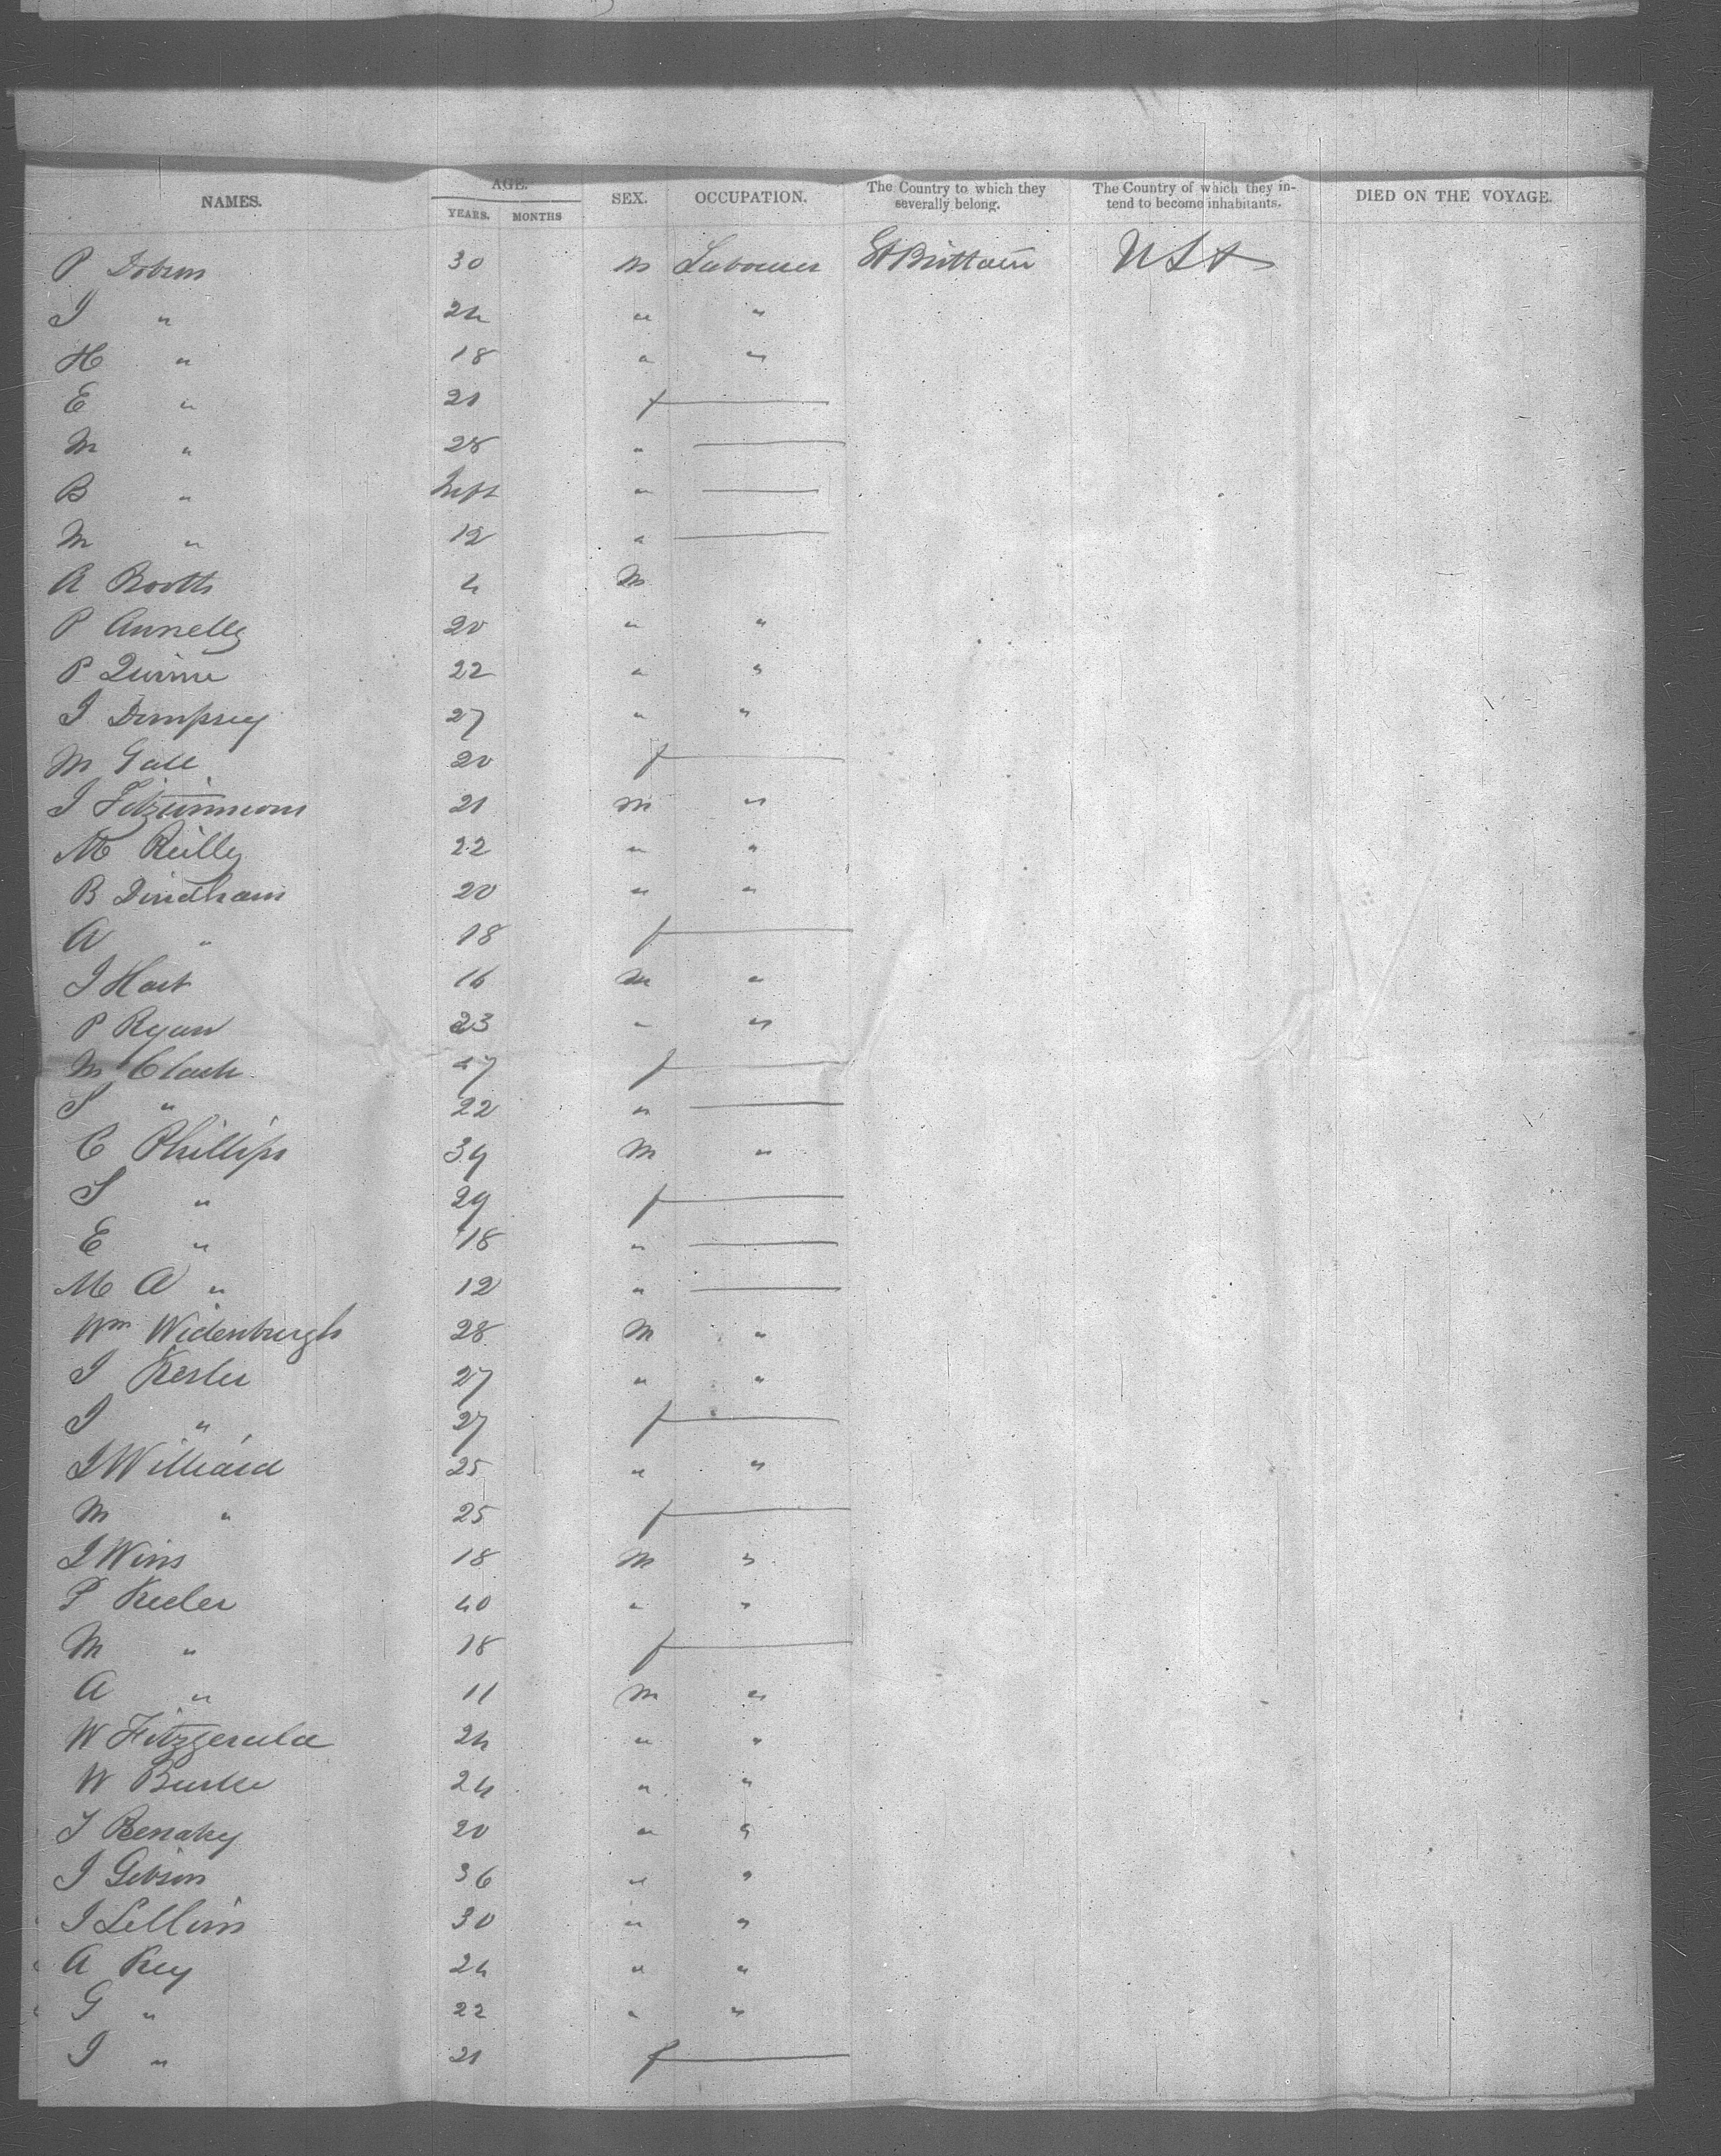 NAMES. AGE. SEX. OCCUPATION. The Country to which they severally belong. The Country of which they intend to become inhabitants. DIED ON THE VOYAGE.
YEARS. MONTHS
P Dobson 30 m Labourer Gt Brittain USA
J " 24 " "
H " 18 " "
E " 21 f —
M " 28 " —
B " Inft " —
M " 12 " —
A Booth 4 M
P Annelly 20 " "
P Quinne 22 " "
J Dempsey 27 " "
M Gall 20 f —
J Fitzsimmons 21 M "
M Reilly 22 " "
B Dindham 20 " "
A " 18 f —
J Hart 16 M "
P Ryan 23 " "
M Clach 27 f —
S " 22 " —
C Phillips 39 M "
S " 29 f —
E " 18 " —
M A " 12 " —
Wm Widenburgh 28 M "
J Kesler 27 " "
J " 27 f —
J Williard 25 " "
M " 25 f —
J Wins 18 M "
P Keeler 40 " "
M " 18 f —
A " 11 M "
W Fitzgerald 24 " "
W Burke 24 " "
T Benahy 20 " "
J Gibson 36 " "
J Lellim 30 " "
A Key 24 " "
G " 22 " "
J " 21 f —